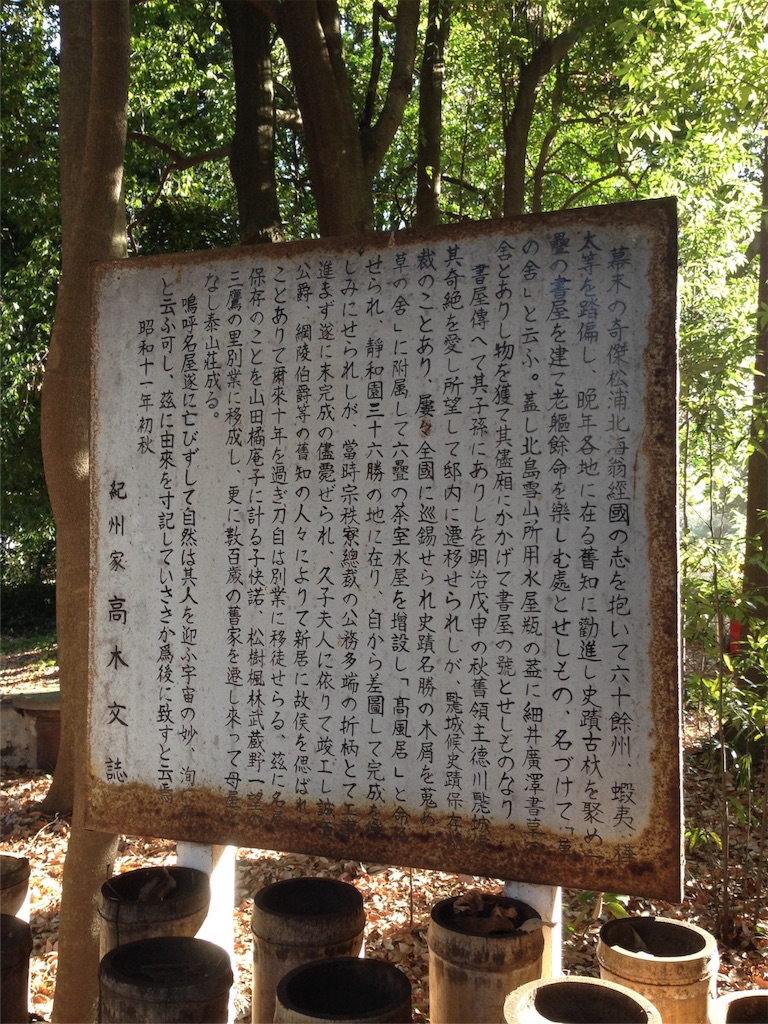 幕末の奇傑松浦北海翁經國の志を抱いて六十餘州、蝦夷、樺
太等を踏偏し、晩年各地に在る舊知に勸進し史蹟古材を聚め一
疊の書屋を建て老軀餘命を樂しむ處とせしもの、名づけて「草
の舍」と云ふ。蓋し北島雪山所用水屋瓶の蓋に細井廣澤書草
舍とありし物を獲て其儘廂にかかげて書屋の號とせしものなり。
書屋傳へて其子孫にありしを明治戊申の秋舊領主德川
其奇絶を愛し所望して邸内に遷移せられしが、城候史蹟保存
裁のことあり、屢々全國に巡錫せられ史蹟名勝の木屑を蒐め
草の舍」に附属して六疊の茶室水屋を増設し「高風居」と命
せられ、靜和園三十六勝の地に在り、自から差圖して完成を
しみにせられしが、當時宗秩寮總裁の公務多端の折柄とて工事
進まず遂に末完成の儘薨ぜられ、久子夫人に依りて竣工し
公爵、綱陵伯爵等の舊知の人々によりて新居に故侯を偲ばれ
ことありて爾來十年を過ぎ刀自は別業に移徒せらる、茲に名
保存のことを山田橘庵子に計る子快諾、松樹楓林武蔵野一望の
三鷹の里別業に移成し、更に數百歳の舊家を遷し來って母屋
なし泰山莊成る。
嗚呼名屋遂に亡びずして自然は其人を迎ふ宇宙の妙、洵
と云ふ可し、茲に由來を寸記していささか爲後に致すと云焉
昭和十一年初秋
紀州家 高木文 誌